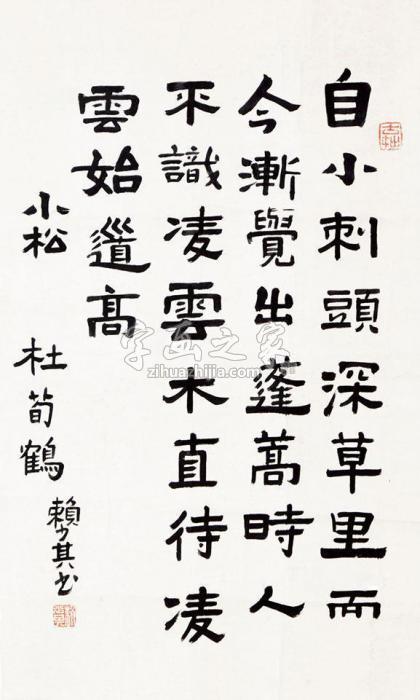 自小刺頭深草里而
今漸覺出蓬蒿時人
不識凌雲木直待凌
雲始道高
小松 杜荀鶴 賴少其书
字画之家
zihuazhijia.com